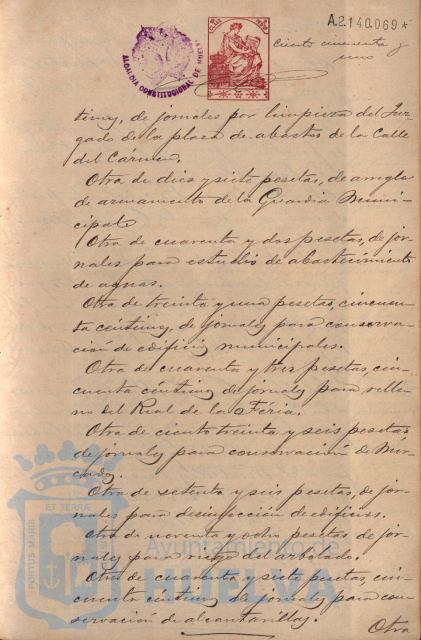 A.2.140.069*
ciento cuarenta y
uno
ALCALDIA CONSTITUCIONAL DE HUELVA
timos, de jornales por limpieza del Juz-
gado de la plaza de abastos de la Calle
del Cármen.
Otra de diez y siete pesetas, de arreglo
de armamento de la Guardia Muni-
cipal
Otra de cuarenta y dos pesetas, de jor-
nales para estudio de abastecimiento
de aguas.
Otra de treinta y una pesetas, cincuen-
ta céntimos, de jornales para conserva-
ción de edificios municipales.
Otra de cuarenta y tres pesetas, cin-
cuenta céntimos de jornales para relle-
no del Real de la Féria.
Otra de ciento treinta y seis pesetas
de jornales para conservación de Mer-
cados.
Otra de setenta y seis pesetas, de jor-
nales para desinfección de edificios.
Otra de noventa y ocho pesetas de jor-
nales para riego de arbolado.
Otra de cuarenta y siete pesetas, cin-
cuenta céntimos de jornales para con-
servación de alcantarillas.
Otra
PORTUS MARIS
ET TERRAE
Ayuntamiento de
HUELVA